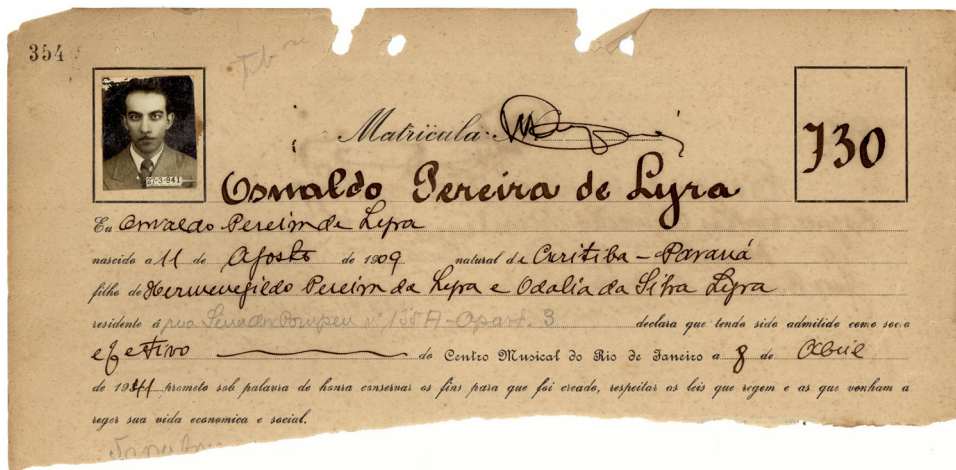 354
Matricula N
730
27-3-941
Oswaldo Pereira de Lyra
Eu Oswaldo Pereira de Lyra
nascido a 11 de Agosto de 1909 natural de Curitiba - Paraná
filho de Hermenegildo Pereira da Lyra e Odalia da Silva Lyra
residente á rua Senador Pompeu nº 155A - apart. 3 declara que tendo sido admitido como socio
efetivo do Centro Musical do Rio de Janeiro a 8 de Abril
de 1941 prometo sob palavra de honra conservar os fins para que foi creado, respeitar as leis que regem e as que venham a
reger sua vida economica e social.